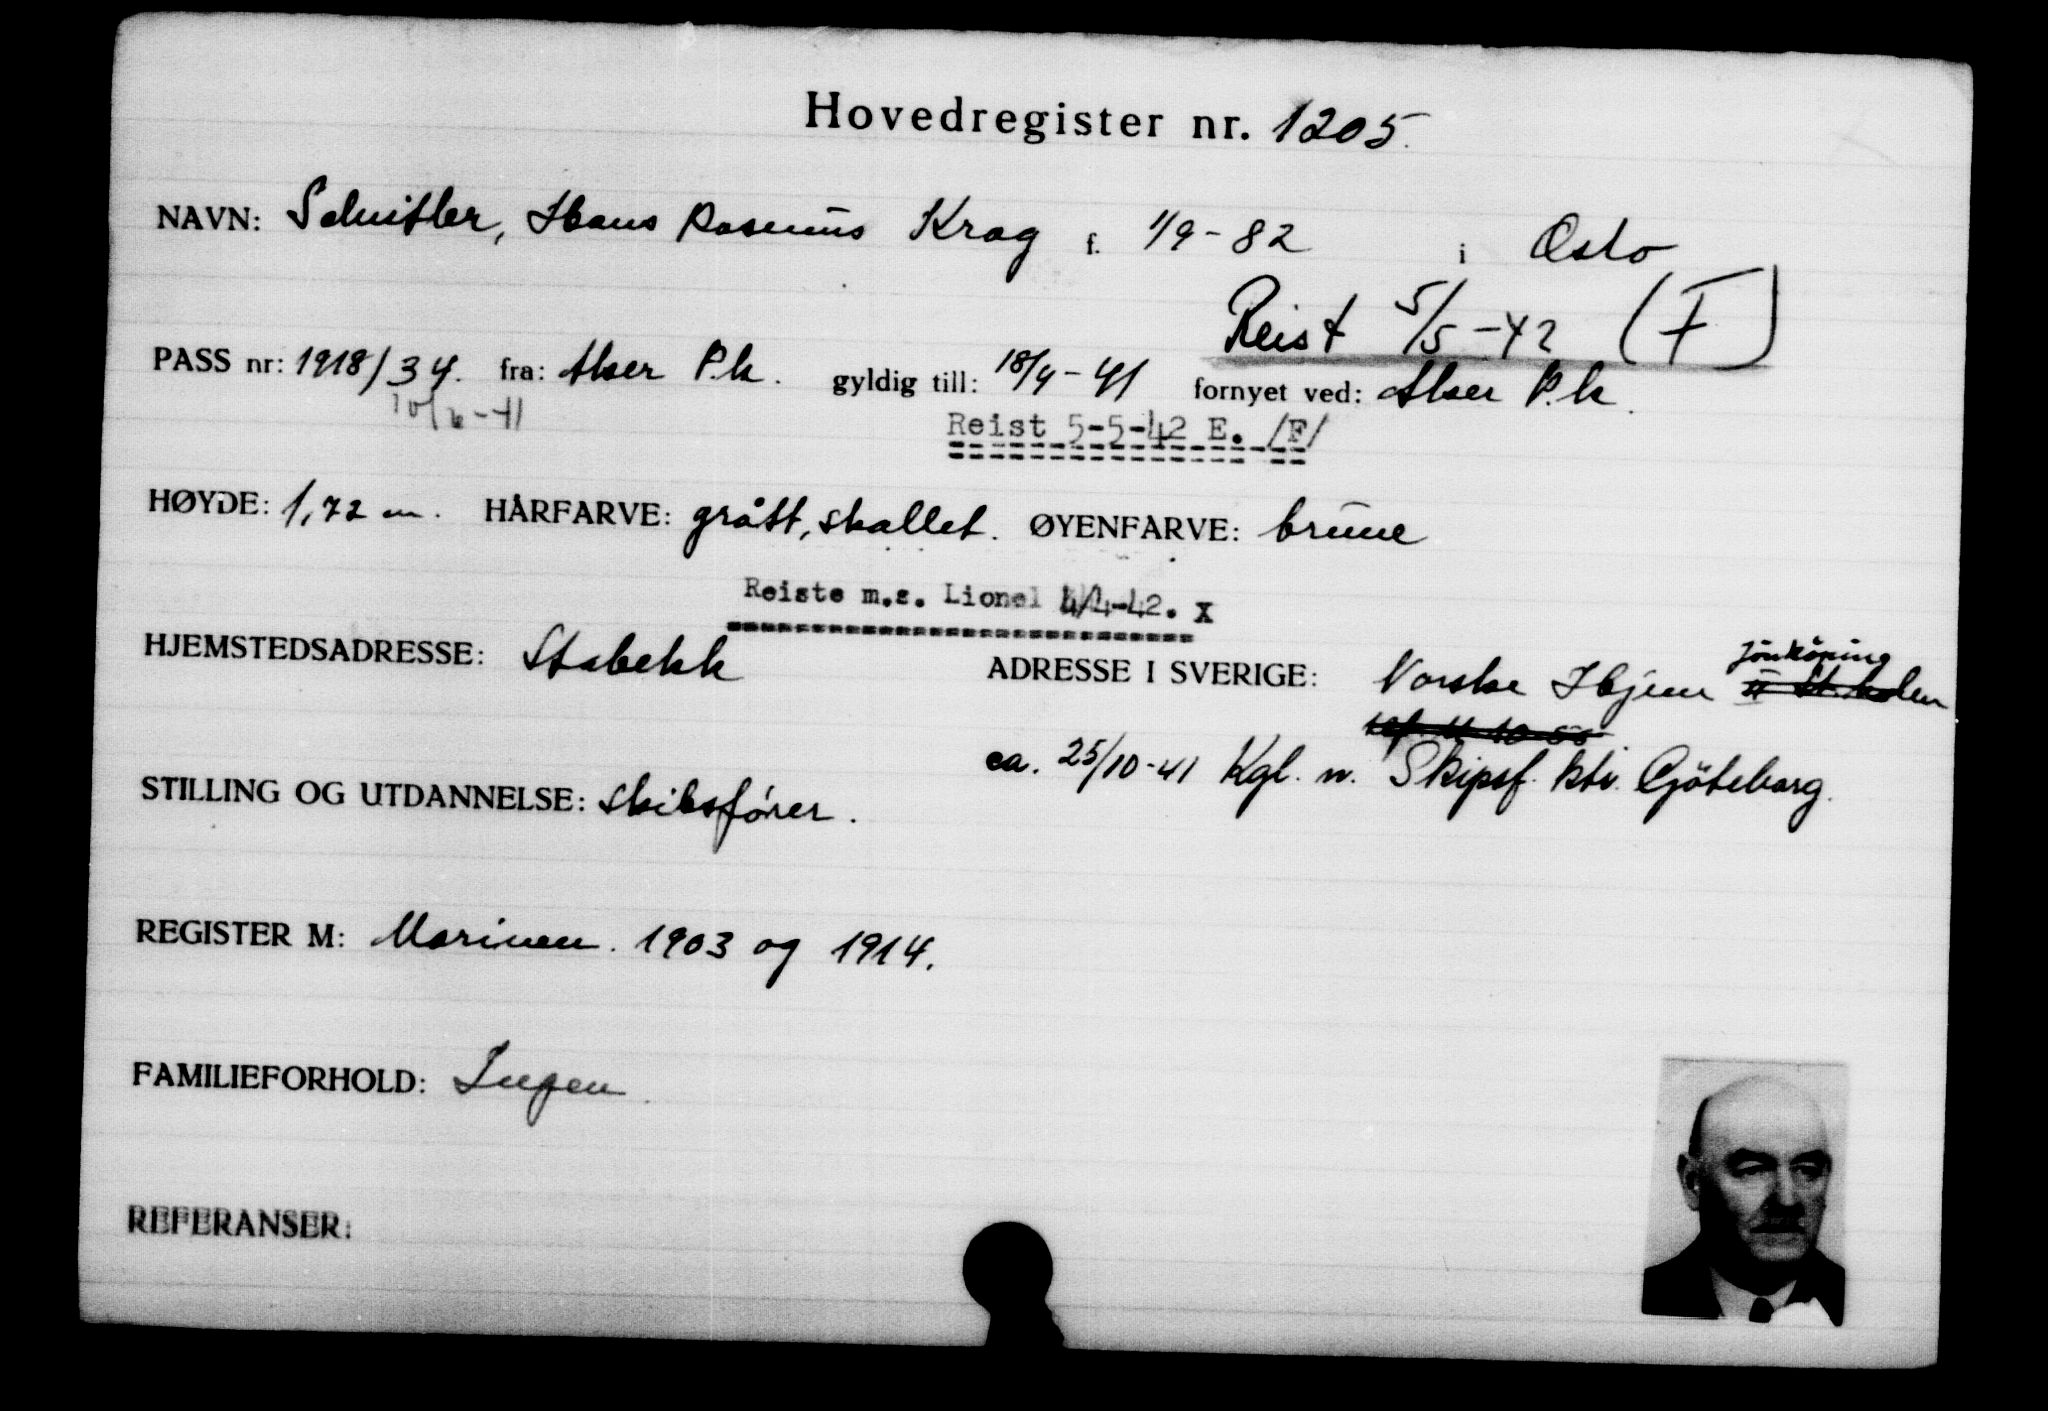 Hovedregister nr. 1205.
NAVN: Schnitler, Hans Rasmus Krag f. 1/9-82 i Oslo
Reist 5/5-42 (F)
PASS nr: 1918/34. fra: Aker P.k. gyldig till: 18/4-41 fornyet ved: Aker P.k.
10/6-41
Reist 5-5-42 E. /F/
HØYDE: 1,72 m. HÅRFARVE: grått, skallet. ØYENFARVE: brune
Reiste m.s. Lionel 4/4-42. X
HJEMSTEDSADRESSE: Stabekk ADRESSE I SVERIGE: Norske Hjem Jönköping
ca. 25/10-41 Kgl. n. Skipsf. ktr. Göteborg.
STILLING OG UTDANNELSE: skibsfører.
REGISTER M: Marinen. 1903 og 1914.
FAMILIEFORHOLD: Ingen.
REFERANSER: